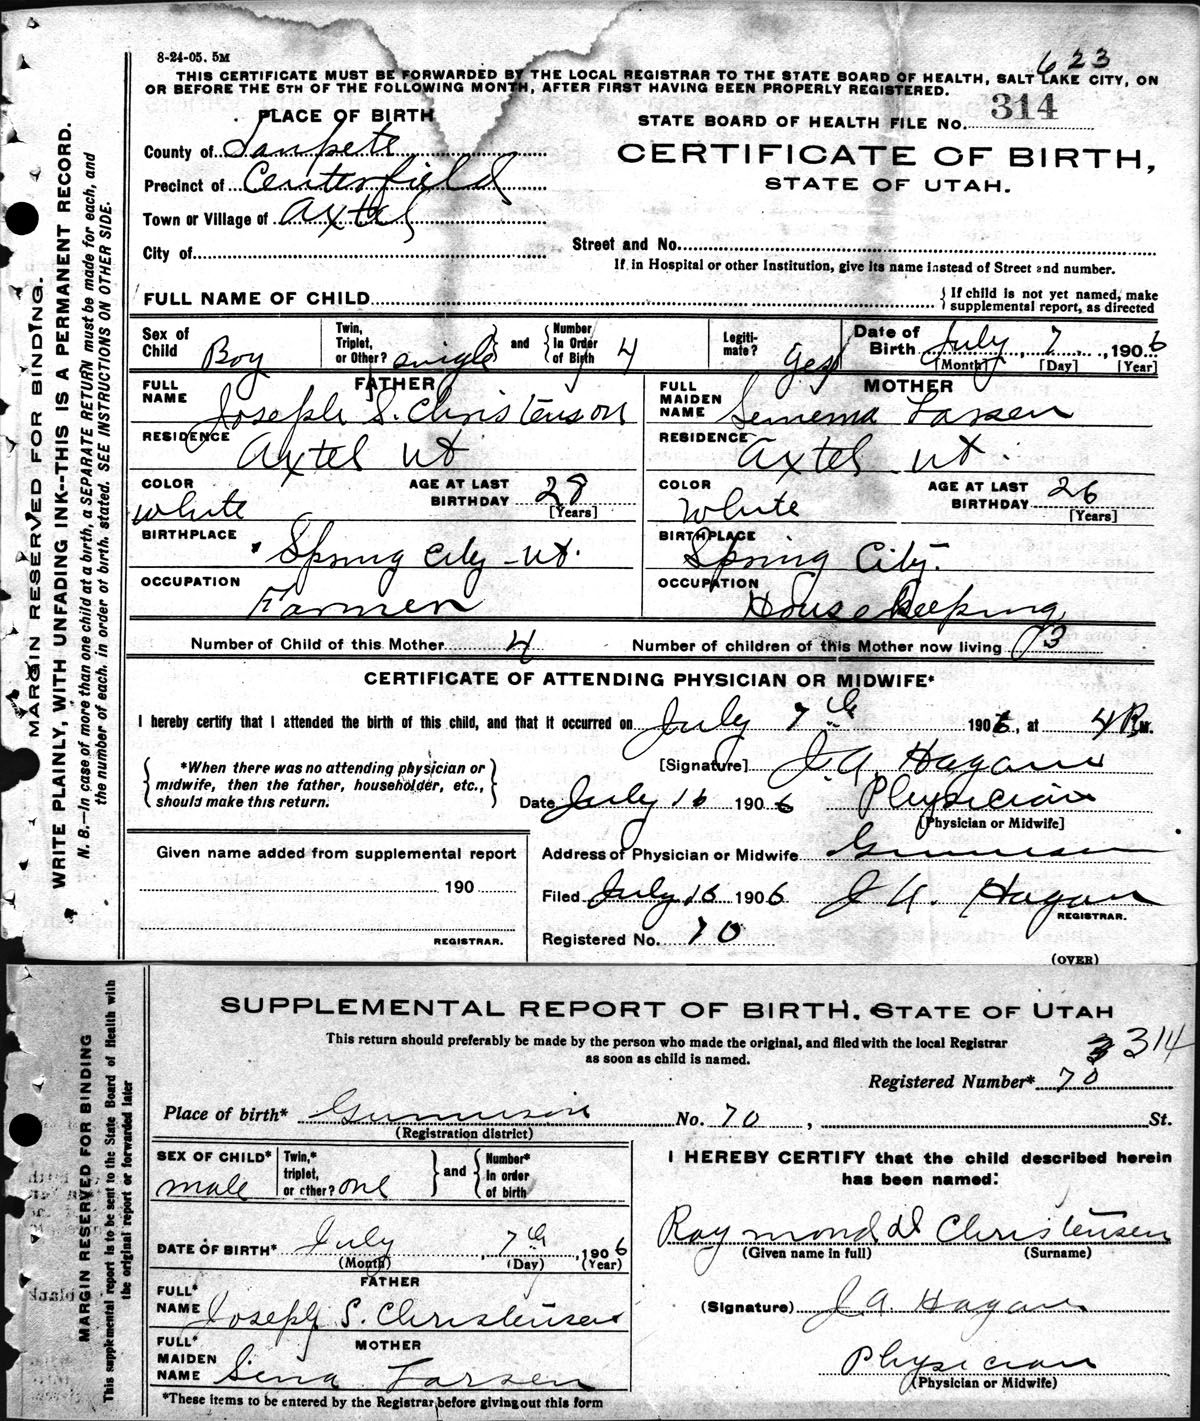 8-24-05. 5M
623
THIS CERTIFICATE MUST BE FORWARDED BY THE LOCAL REGISTRAR TO THE STATE BOARD OF HEALTH, SALT LAKE CITY, ON
OR BEFORE THE 5TH OF THE FOLLOWING MONTH, AFTER FIRST HAVING BEEN PROPERLY REGISTERED.
MARGIN RESERVED FOR BINDING.
WRITE PLAINLY, WITH UNFADING INK--THIS IS A PERMANENT RECORD.
N. B.—In case of more than one child at a birth, a SEPARATE RETURN must be made for each, and
the number of each, in order of birth, stated. SEE INSTRUCTIONS ON OTHER SIDE.
PLACE OF BIRTH
County of Sanpete
Precinct of Centerfield
Town or Village of Axtel
City of
STATE BOARD OF HEALTH FILE No. 314
CERTIFICATE OF BIRTH,
STATE OF UTAH.
Street and No.
If in Hospital or other Institution, give its name instead of Street and number.
FULL NAME OF CHILD
If child is not yet named, make
supplemental report, as directed
Sex of Child Boy
Twin, Triplet, or Other? single and Number In Order of Birth 4
Legitimate? yes
Date of Birth July 7, 1906
[Month] [Day] [Year]
FATHER
FULL NAME Joseph S. Christenson
RESIDENCE Axtel Ut
COLOR White
AGE AT LAST BIRTHDAY 28
[Years]
BIRTHPLACE Spring City Ut.
OCCUPATION Farmer
MOTHER
FULL MAIDEN NAME Senema Larsen
RESIDENCE Axtel Ut.
COLOR White
AGE AT LAST BIRTHDAY 26
[Years]
BIRTHPLACE Spring City.
OCCUPATION Housekeeping
Number of Child of this Mother 4
Number of children of this Mother now living 3
CERTIFICATE OF ATTENDING PHYSICIAN OR MIDWIFE*
I hereby certify that I attended the birth of this child, and that it occurred on July 7th 1906, at 4 P.M.
*When there was no attending physician or
midwife, then the father, householder, etc.,
should make this return.
[Signature] J. A. Hagan
Date July 16 1906 Physician
[Physician or Midwife]
Given name added from supplemental report
190
REGISTRAR.
Address of Physician or Midwife Gunnison
Filed July 16 1906 J A. Hagan
REGISTRAR.
Registered No. 70
(OVER)
MARGIN RESERVED FOR BINDING
This supplemental report is to be sent to the State Board of Health with
the original report or forwarded later
SUPPLEMENTAL REPORT OF BIRTH, STATE OF UTAH
This return should preferably be made by the person who made the original, and filed with the local Registrar
as soon as child is named.
314
Registered Number* 70
Place of birth* Gunnison No. 70, St.
(Registration district)
SEX OF CHILD* male
Twin,* triplet, or other? one and Number* in order of birth
DATE OF BIRTH* July, 7th, 1906
(Month) (Day) (Year)
FATHER
FULL* NAME Joseph S. Christensen
MOTHER
FULL* MAIDEN NAME Sena Larsen
*These items to be entered by the Registrar before giving out this form
I HEREBY CERTIFY that the child described herein
has been named:
Raymond D Christensen
(Given name in full) (Surname)
(Signature) J. A. Hagan
Physician
(Physician or Midwife)